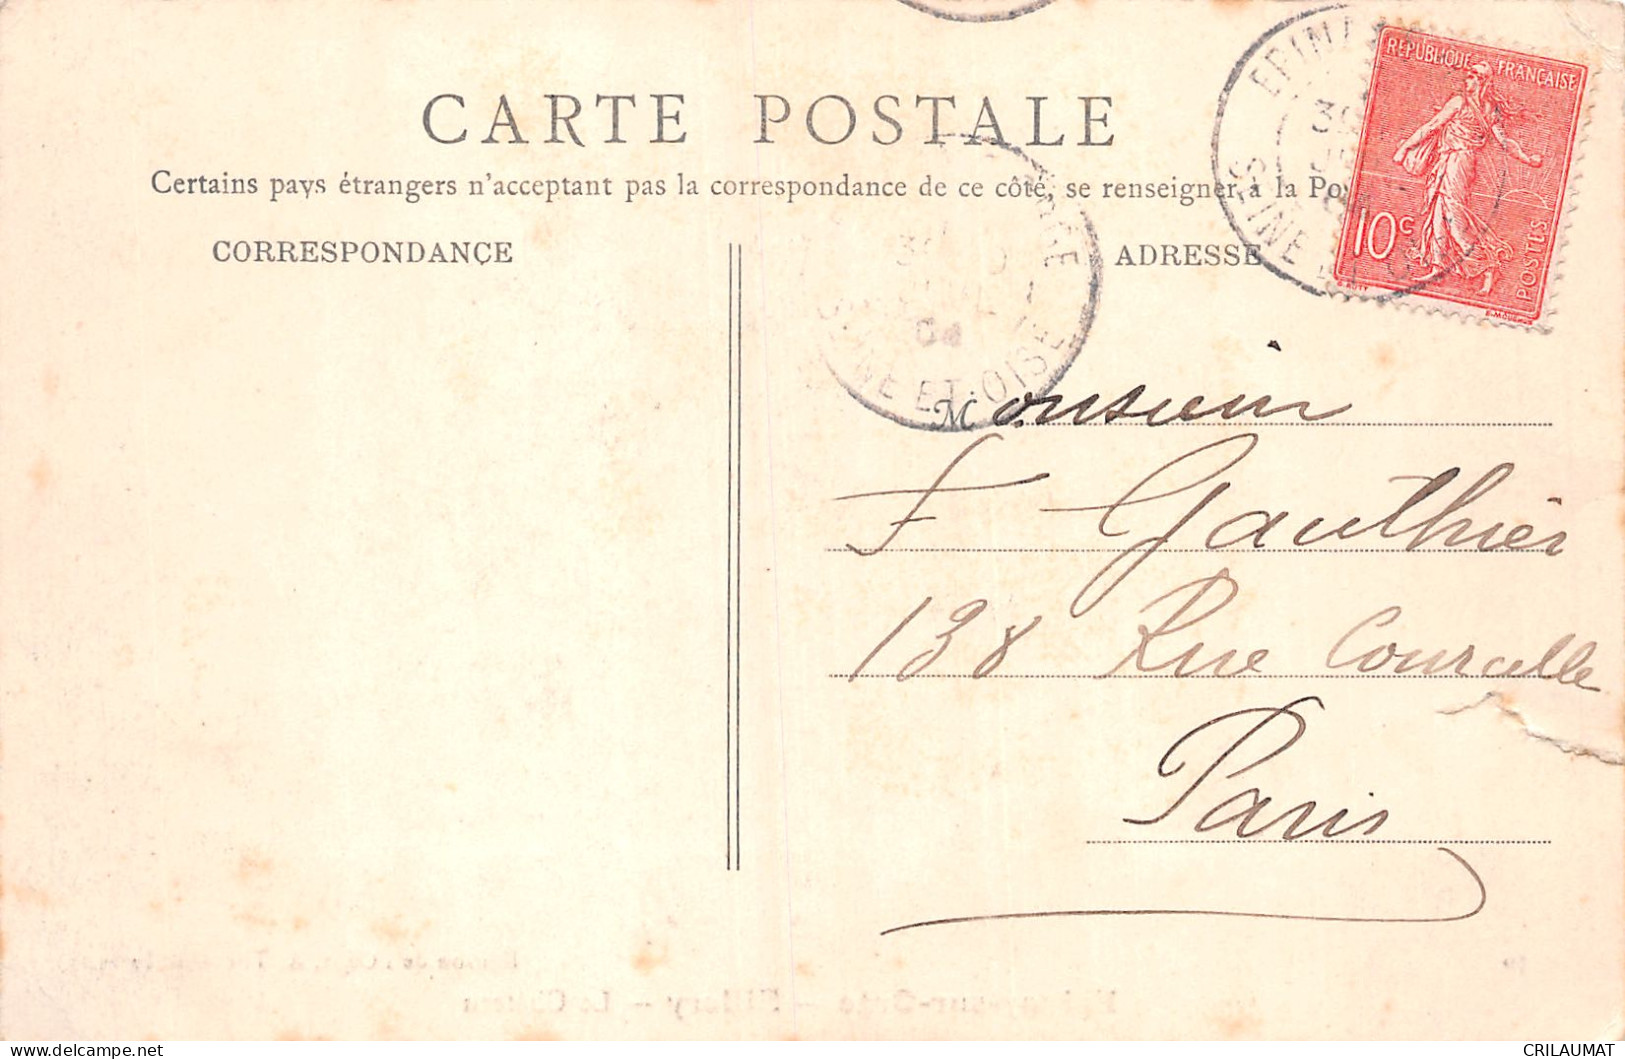 CARTE POSTALE
Certains pays étrangers n'acceptant pas la correspondance de ce côté, se renseigner à la Po
CORRESPONDANCE
ADRESSE
RÉPUBLIQUE FRANÇAISE
10c
POSTES
EPINAY
30
SEINE ET
30
04
SEINE ET OISE
Monsieur
F Gauthier
138 Rue Courcelle
Paris
Epinay-sur-Orge — Sillery — Le Château
CRILAUMAT